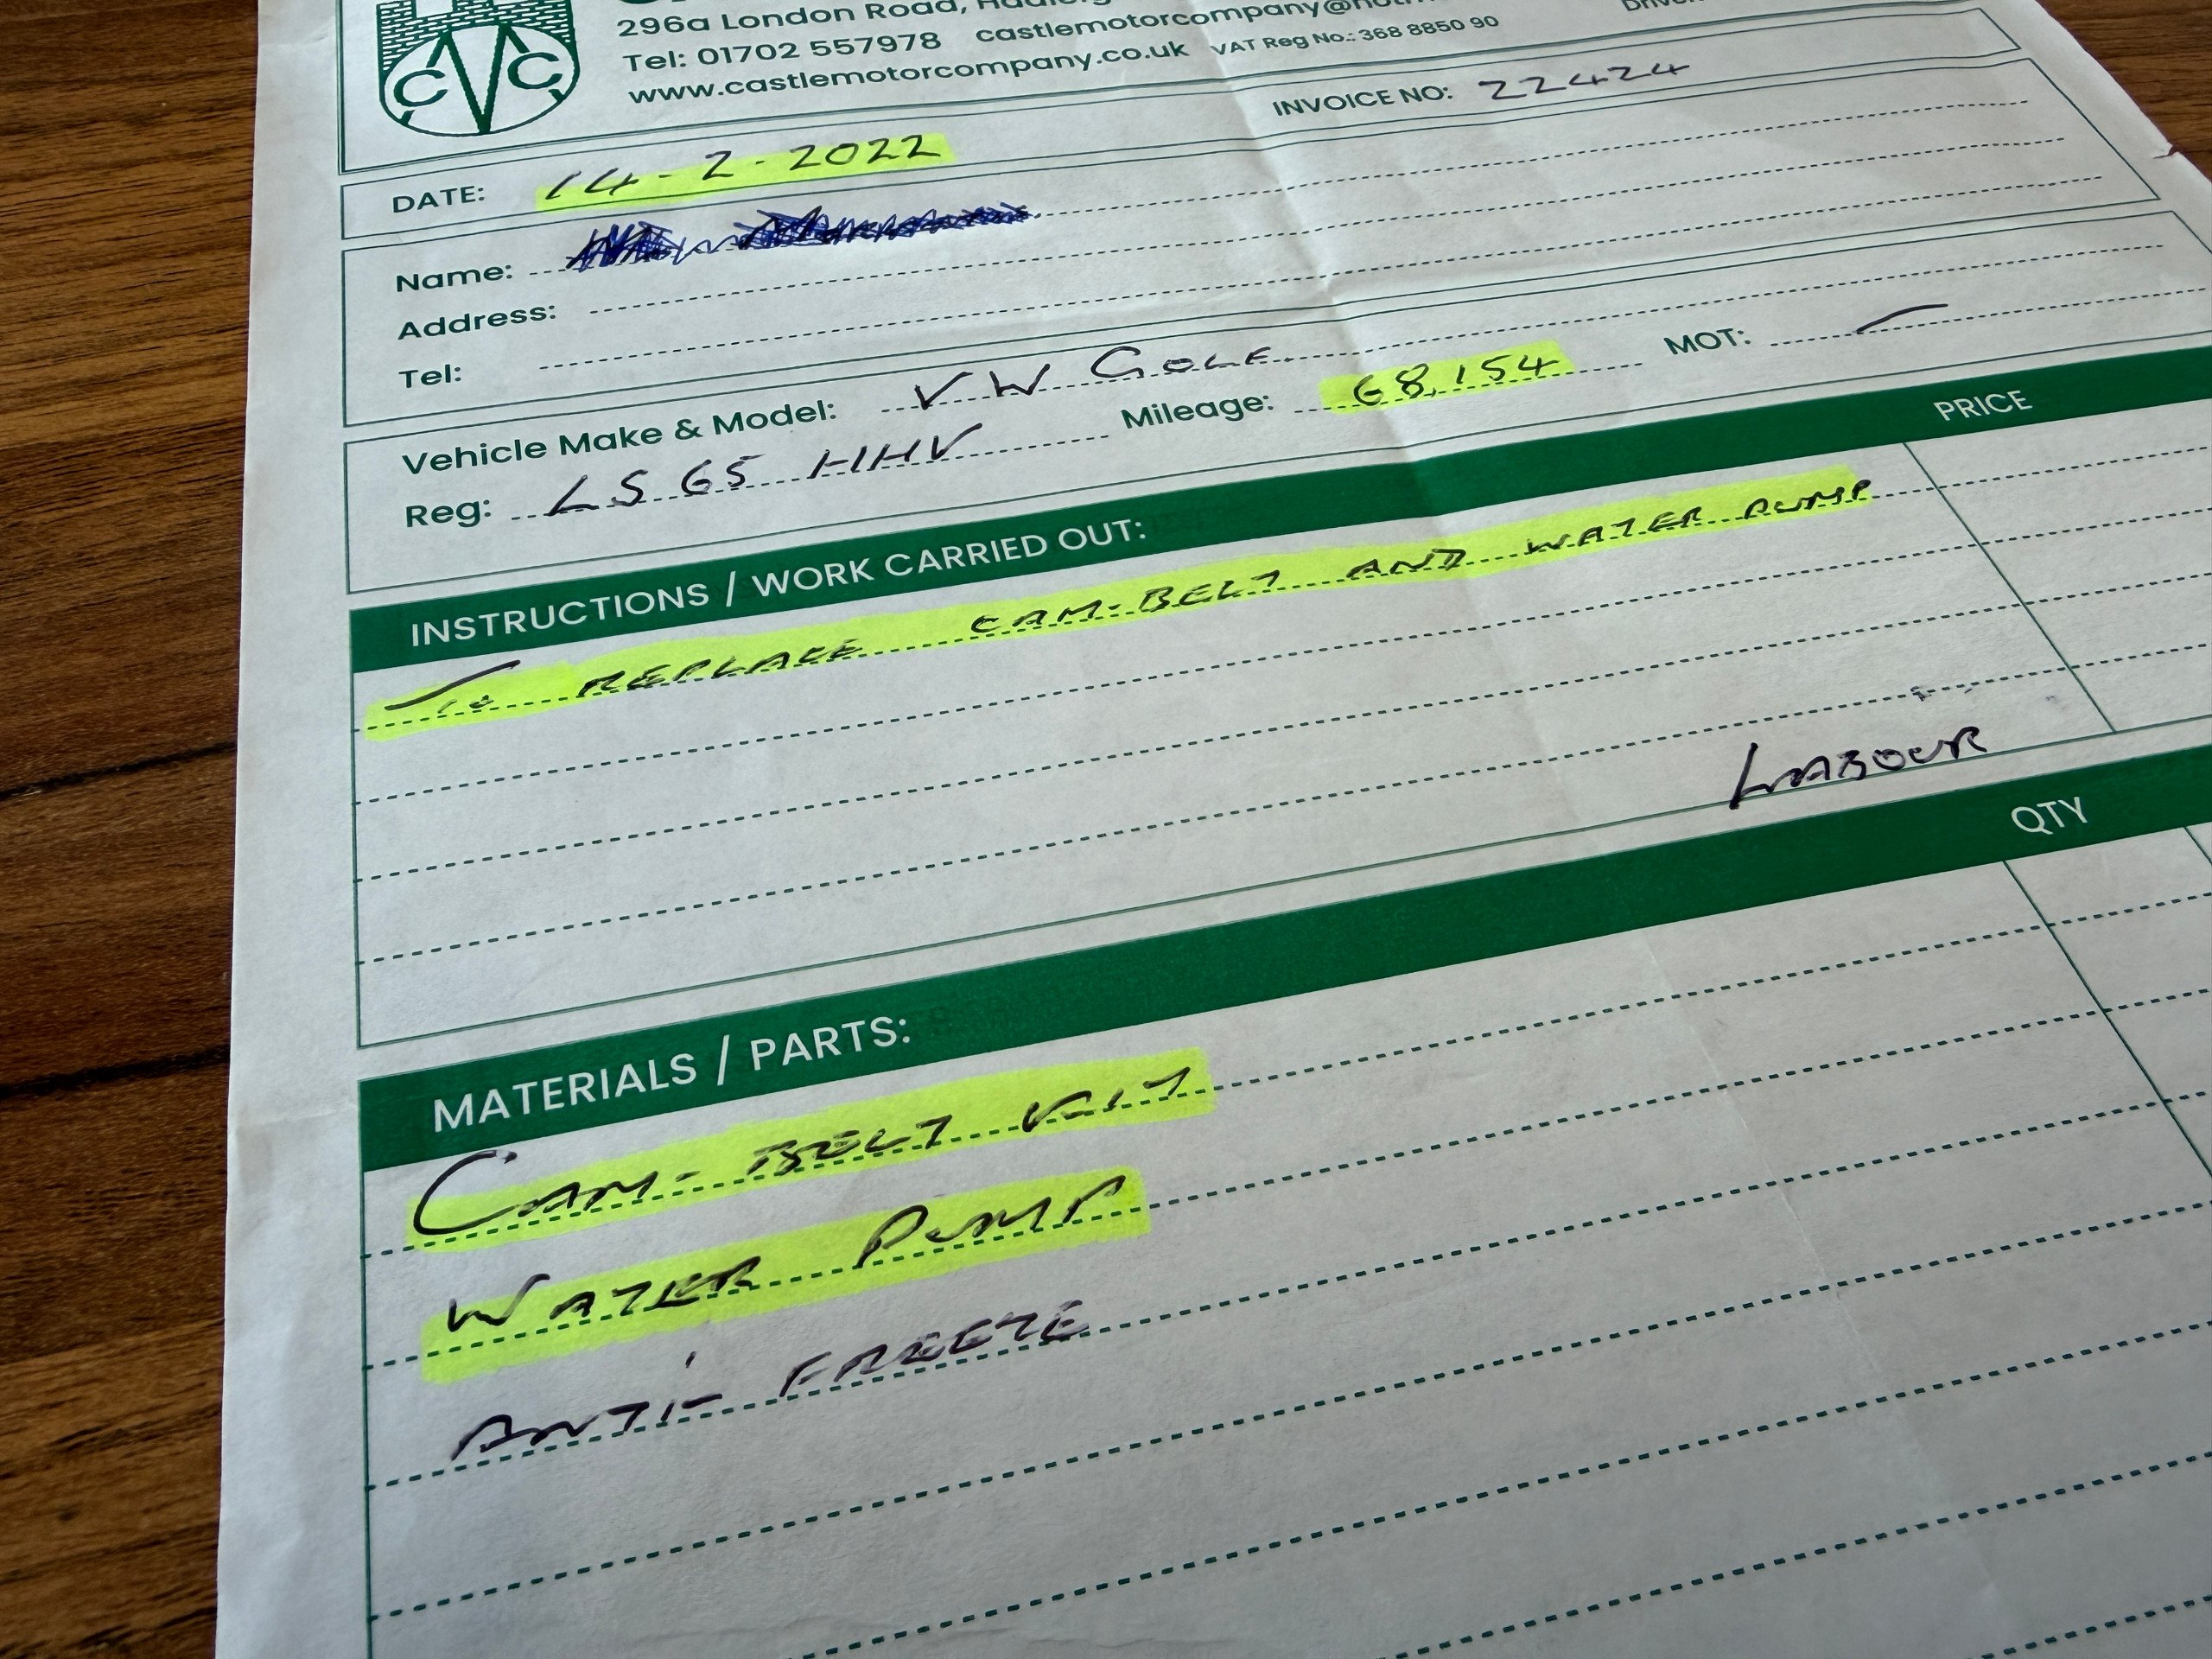 296a London Road,
Tel: 01702 557978 castlemotorcompany@
www.castlemotorcompany.co.uk VAT Reg No.: 368 8850 90
CVC
INVOICE NO: 22424
DATE: 14-2-2022
Name:
Address:
Tel:
Vehicle Make & Model: VW GOLF
Reg: LS65 HHV Mileage: 68,154 MOT: —
INSTRUCTIONS / WORK CARRIED OUT: PRICE
To REPLACE CAM-BELT AND WATER PUMP
LABOUR
MATERIALS / PARTS: QTY
CAM-BELT KIT
WATER PUMP
ANTI-FREEZE